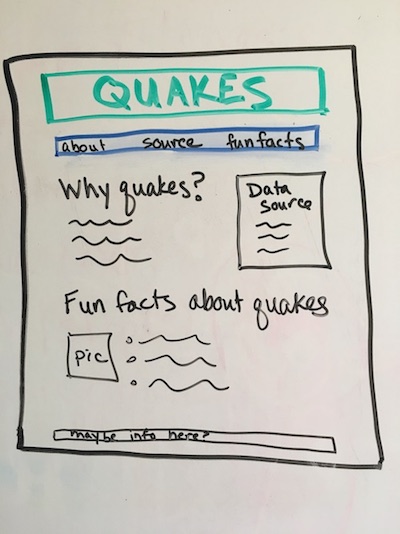 QUAKES
about source funfacts
Why quakes?
Data
Source
Fun facts about quakes
pic
maybe info here?